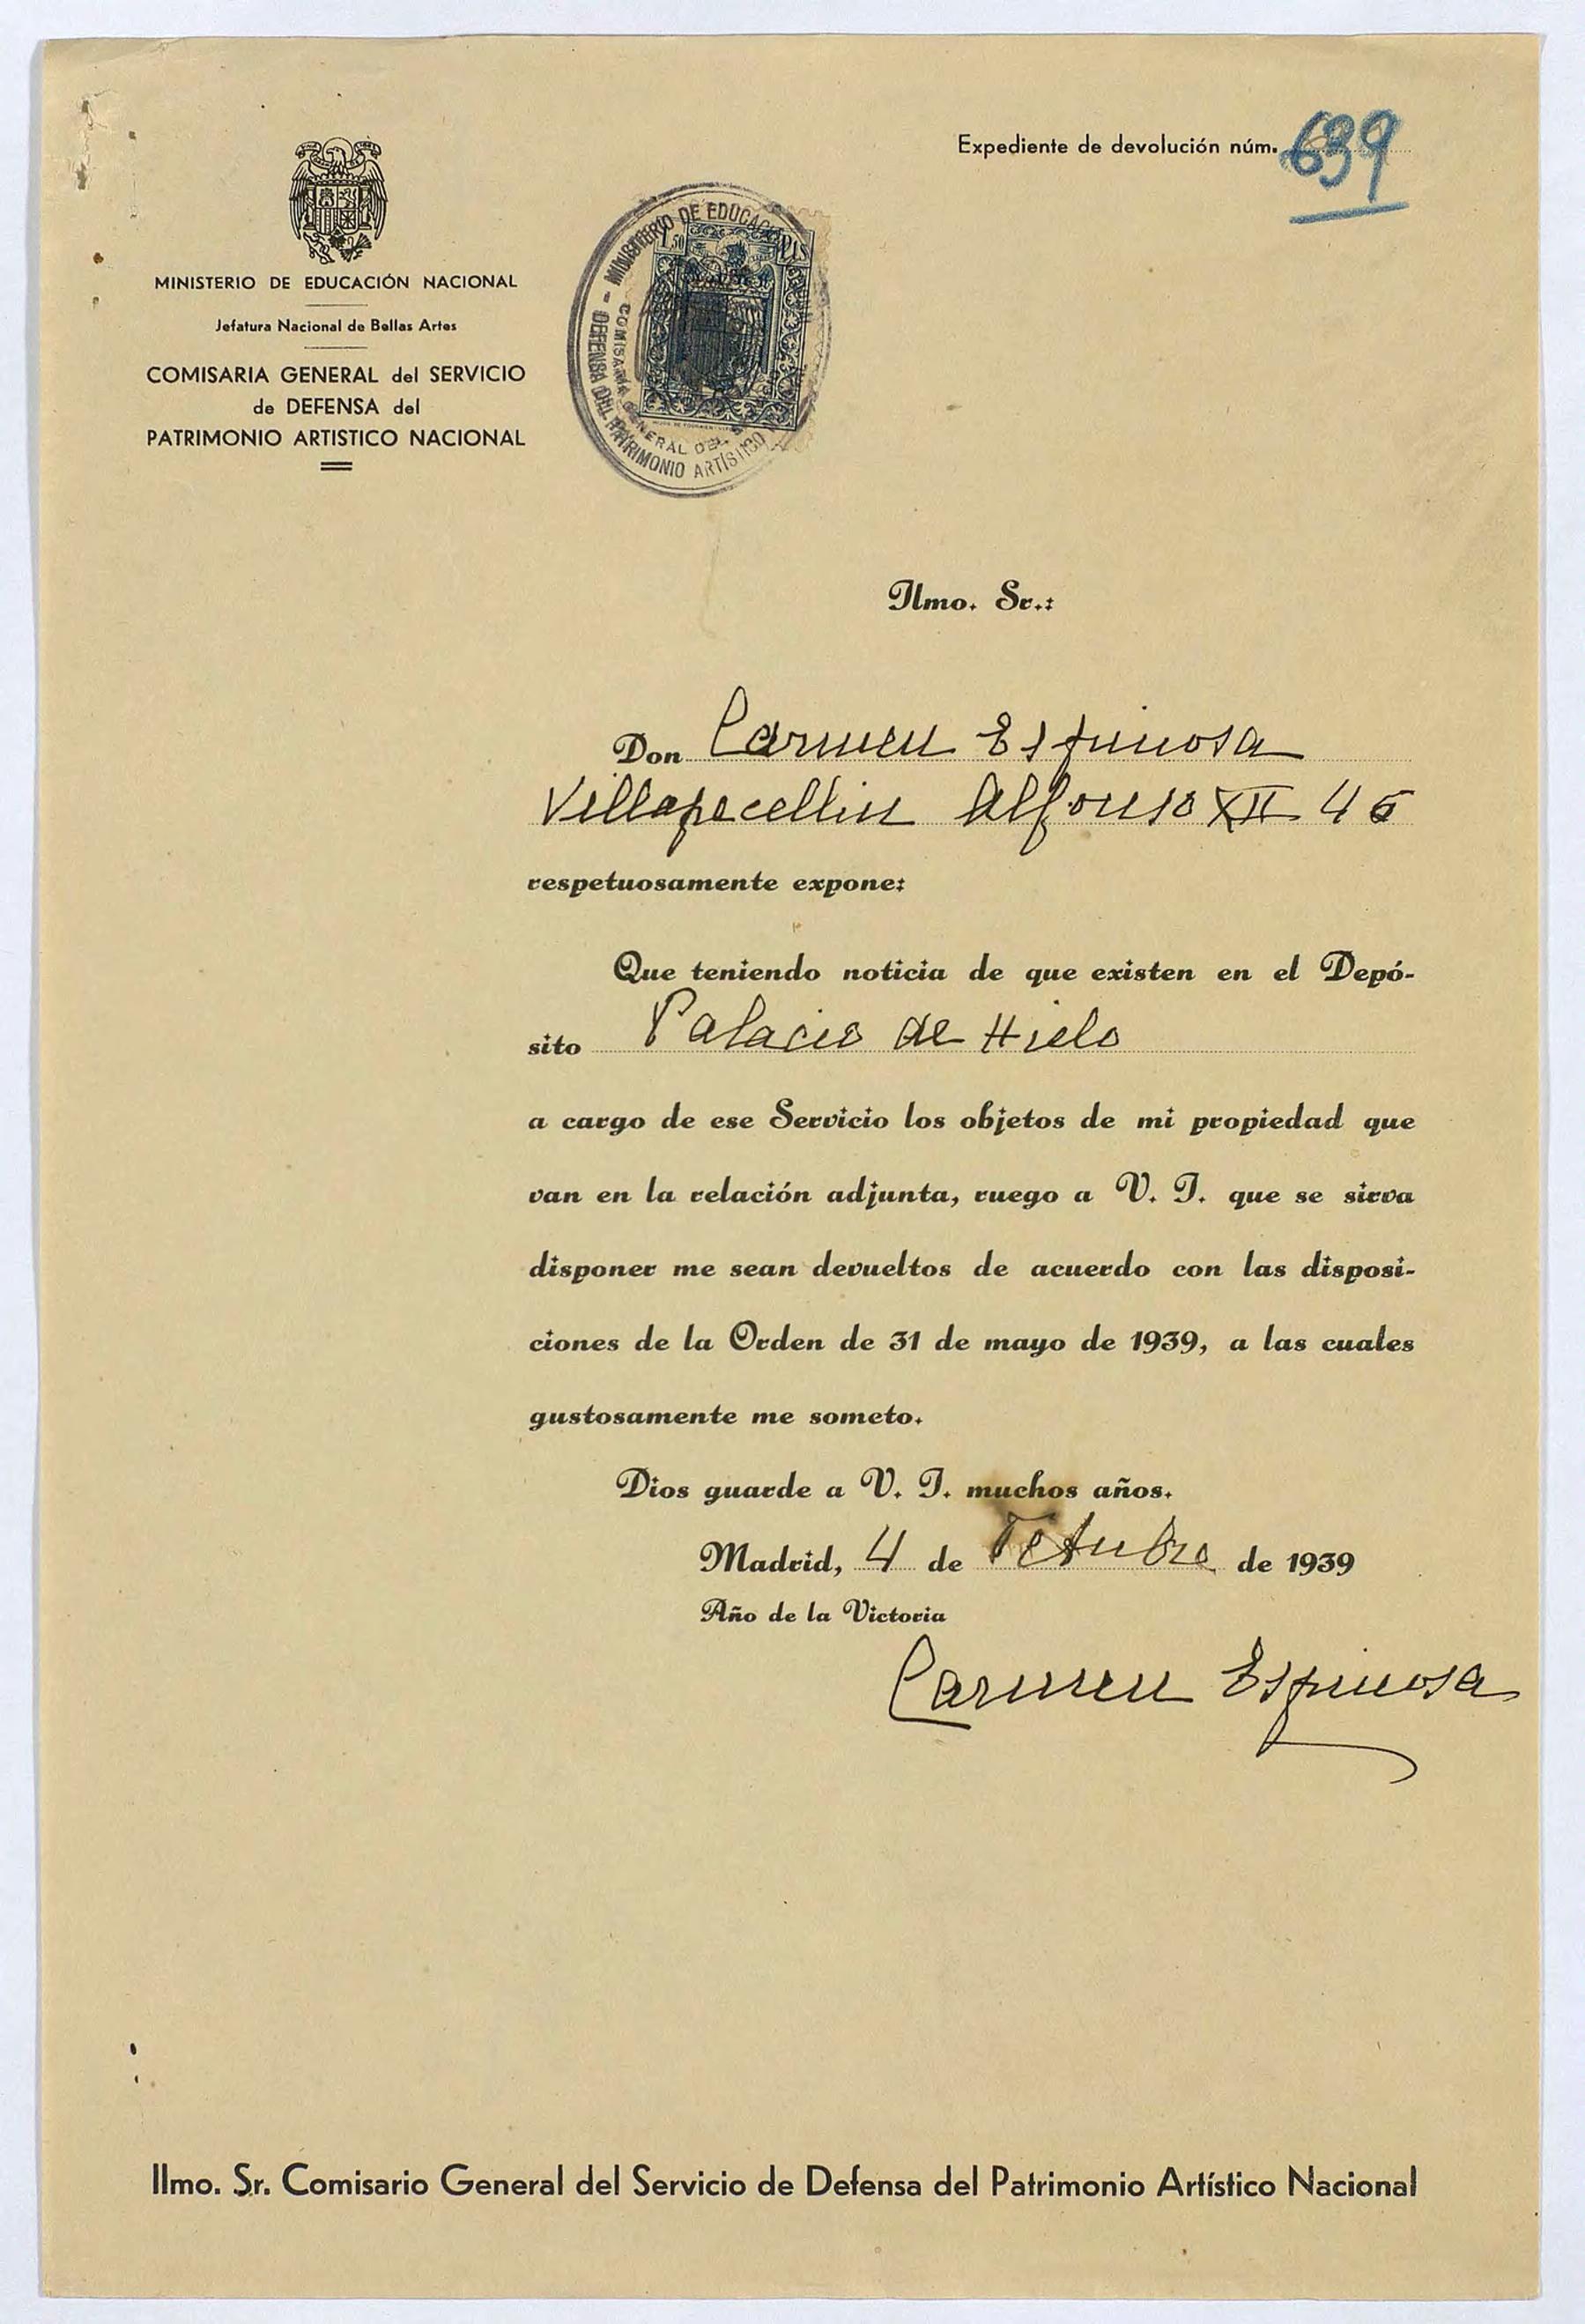 Expediente de devolución núm. 639
MINISTERIO DE EDUCACIÓN NACIONAL
Jefatura Nacional de Bellas Artes
COMISARIA GENERAL del SERVICIO
de DEFENSA del
PATRIMONIO ARTISTICO NACIONAL
MINISTERIO DE EDUCAC
DEFENSA DEL PATRIMONIO ARTÍSTICO
COMISARIA GENERAL DEL
1,50 PTS
Ilmo. Sr.:
Don Carmen Espinosa
Villapecellin Alfonso XII 46
respetuosamente expone:
Que teniendo noticia de que existen en el Depó-
sito Palacio de Hielo
a cargo de ese Servicio los objetos de mi propiedad que
van en la relación adjunta, ruego a V. I. que se sirva
disponer me sean devueltos de acuerdo con las disposi-
ciones de la Orden de 31 de mayo de 1939, a las cuales
gustosamente me someto.
Dios guarde a V. I. muchos años.
Madrid, 4 de Octubre de 1939
Año de la Victoria
Carmen Espinosa
Ilmo. Sr. Comisario General del Servicio de Defensa del Patrimonio Artístico Nacional